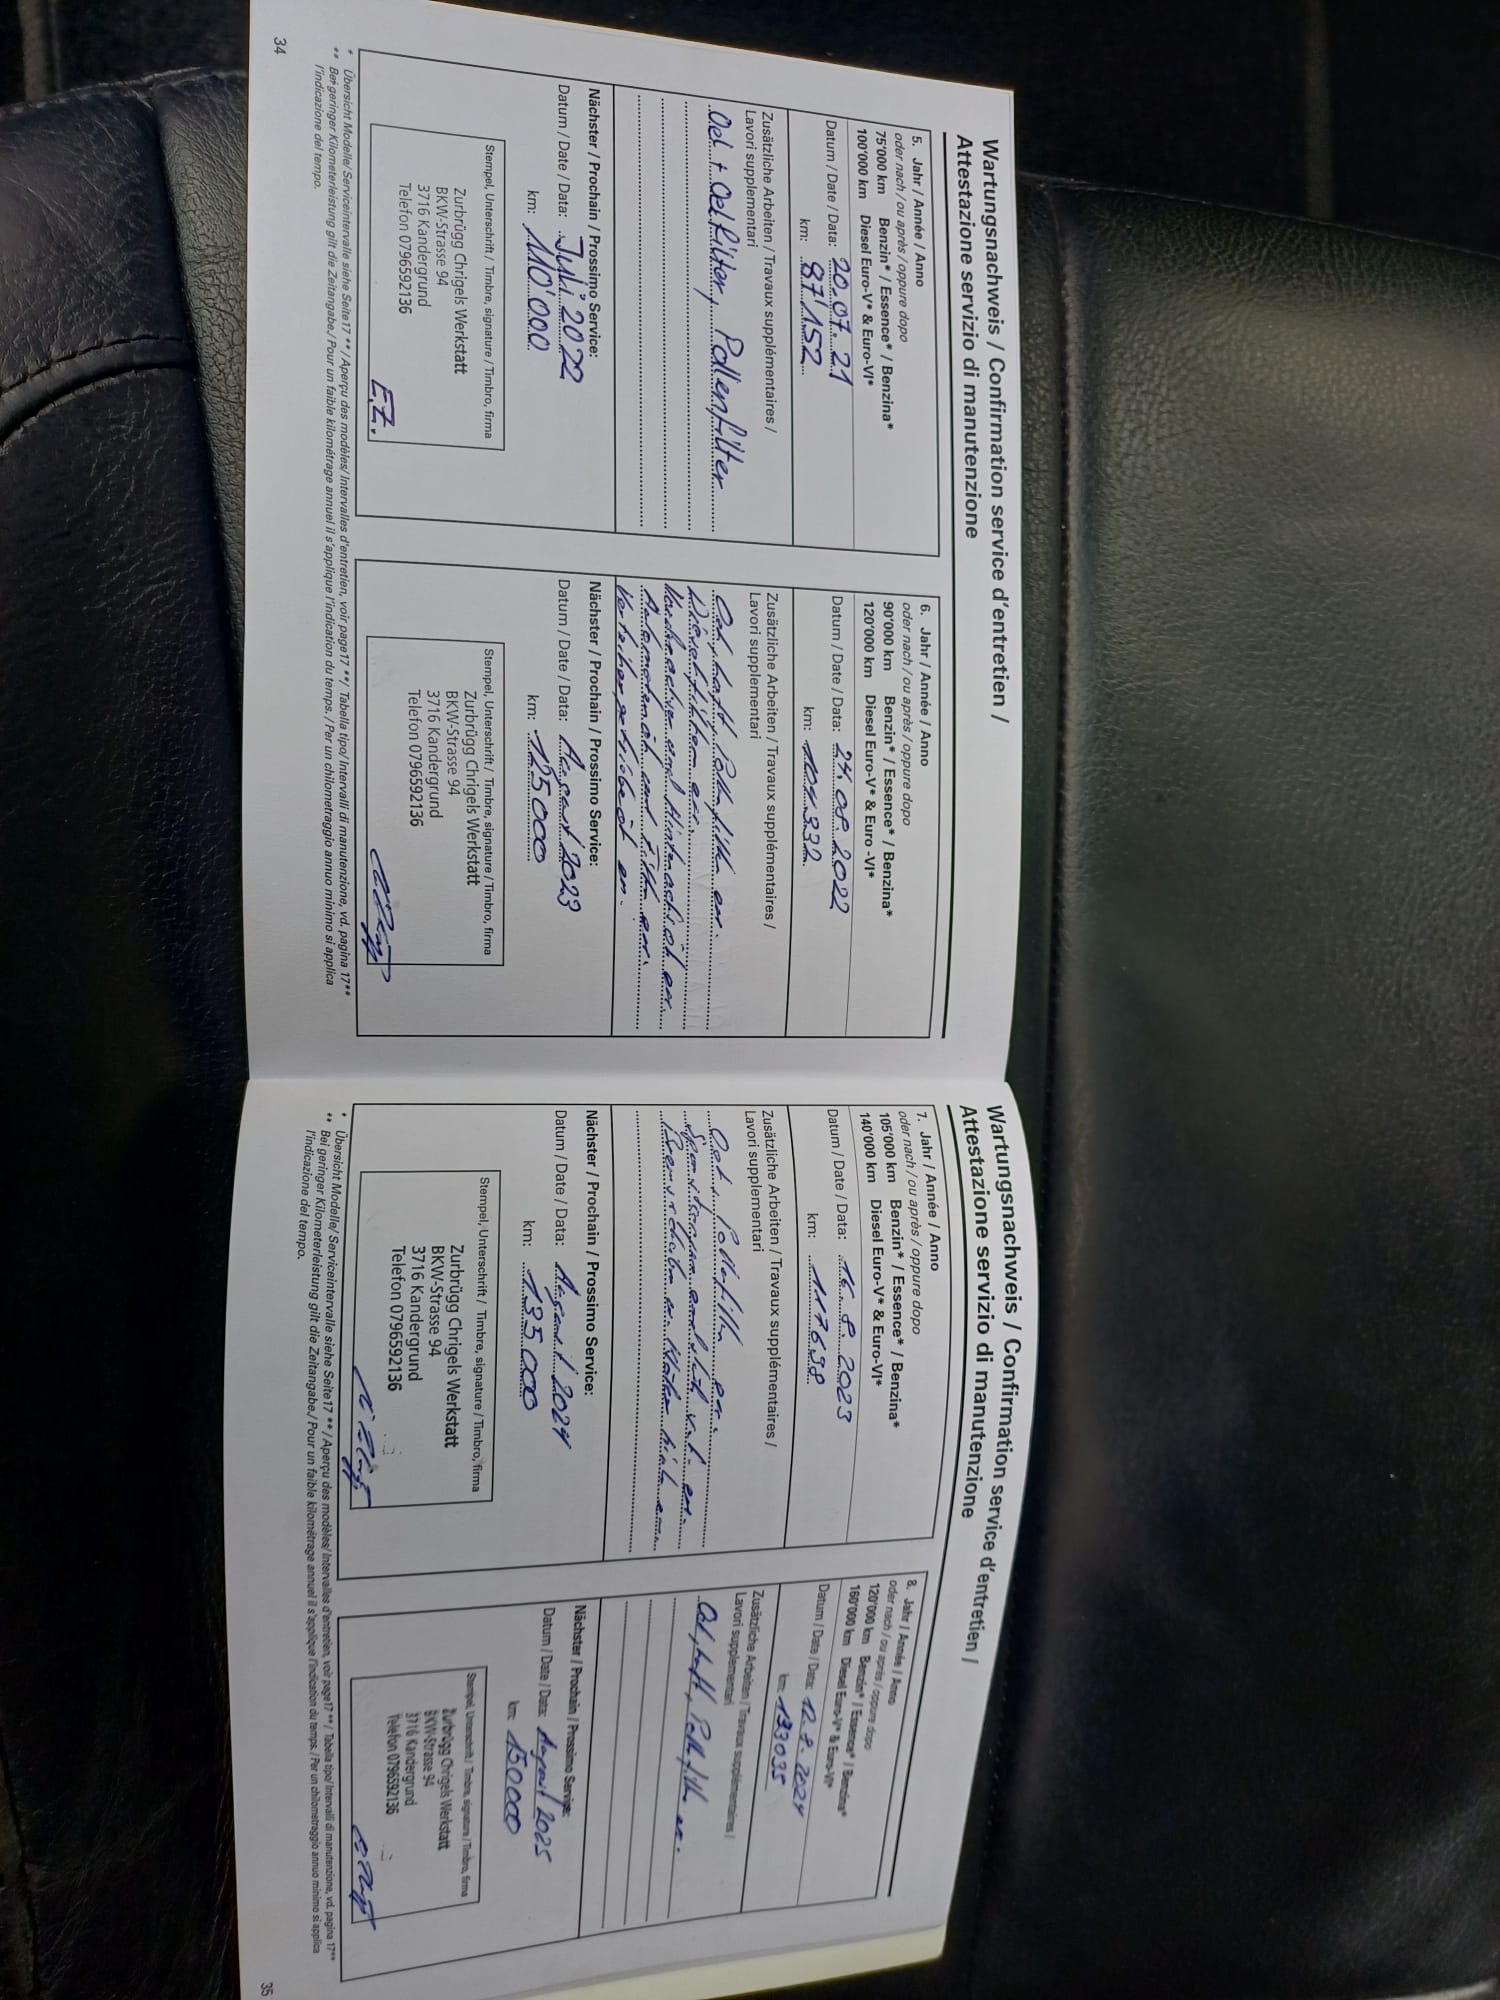 Wartungsnachweis / Confirmation service d'entretien /
Attestazione servizio di manutenzione
5. Jahr / Année / Anno
oder nach / ou après / oppure dopo
75'000 km Benzin* / Essence* / Benzina*
100'000 km Diesel Euro-V* & Euro-VI*
Datum / Date / Data: 20.07.21
km: 87'152
Zusätzliche Arbeiten / Travaux supplémentaires /
Lavori supplementari
Oel + Oelfilter, Pollenfilter
Nächster / Prochain / Prossimo Service:
Datum / Date / Data: Juli 2022
km: 110'000
Stempel, Unterschrift / Timbre, signature / Timbro, firma
Zurbrügg Chrigels Werkstatt
BKW-Strasse 94
3716 Kandergrund
Telefon 0796592136
E.Z.
6. Jahr / Année / Anno
oder nach / ou après / oppure dopo
90'000 km Benzin* / Essence* / Benzina*
120'000 km Diesel Euro-V* & Euro -VI*
Datum / Date / Data: 24.08.2022
km: 104332
Zusätzliche Arbeiten / Travaux supplémentaires /
Lavori supplementari
Pollenfilter er.
Dieselfilter er.
Vorderachse und Hinterachsöl er.
Automatenöl und Filter er.
Verteilergetriebeöl er.
Nächster / Prochain / Prossimo Service:
Datum / Date / Data: August 2023
km: 125000
Stempel, Unterschrift / Timbre, signature / Timbro, firma
Zurbrügg Chrigels Werkstatt
BKW-Strasse 94
3716 Kandergrund
Telefon 0796592136
* Übersicht Modelle/ Serviceintervalle siehe Seite17 ** / Aperçu des modèles/ Intervalles d'entretien, voir page17 **/ Tabella tipo/ Intervalli di manutenzione, vd. pagina 17**
** Bei geringer Kilometerleistung gilt die Zeitangabe./ Pour un faible kilométrage annuel il s'applique l'indication du temps. / Per un chilometraggio annuo minimo si applica
l'indicazione del tempo.
34
Wartungsnachweis / Confirmation service d'entretien /
Attestazione servizio di manutenzione
7. Jahr / Année / Anno
oder nach / ou après / oppure dopo
105'000 km Benzin* / Essence* / Benzina*
140'000 km Diesel Euro-V* & Euro-VI*
Datum / Date / Data: 16.8.2023
km: 117698
Zusätzliche Arbeiten / Travaux supplémentaires /
Lavori supplementari
Pollenfilter er.
Spurstangen
Bremsscheiben
Nächster / Prochain / Prossimo Service:
Datum / Date / Data: August 2024
km: 135000
Stempel, Unterschrift / Timbre, signature / Timbro, firma
Zurbrügg Chrigels Werkstatt
BKW-Strasse 94
3716 Kandergrund
Telefon 0796592136
8. Jahr / Année / Anno
oder nach / ou après / oppure dopo
120'000 km Benzin* / Essence* / Benzina*
160'000 km Diesel Euro-V* & Euro-VI*
Datum / Date / Data: 12.8.2024
km: 133095
Zusätzliche Arbeiten / Travaux supplémentaires /
Lavori supplementari
Pollenfilter er.
Nächster / Prochain / Prossimo Service:
Datum / Date / Data: August 2025
km: 150000
Stempel, Unterschrift / Timbre, signature / Timbro, firma
Zurbrügg Chrigels Werkstatt
BKW-Strasse 94
3716 Kandergrund
Telefon 0796592136
* Übersicht Modelle/ Serviceintervalle siehe Seite17 ** / Aperçu des modèles/ Intervalles d'entretien, voir page17 **/ Tabella tipo/ Intervalli di manutenzione, vd. pagina 17**
** Bei geringer Kilometerleistung gilt die Zeitangabe./ Pour un faible kilométrage annuel il s'applique l'indication du temps. / Per un chilometraggio annuo minimo si applica
l'indicazione del tempo.
35